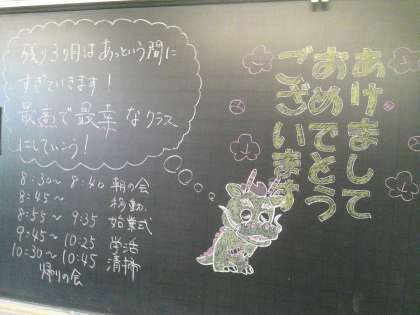 あけまして
おめでとう
ございます
残り3ヶ月はあっという間に
すぎていきます！
最高で最幸なクラス
にしていこう！
8:30～8:40 朝の会
8:45～ 移動
8:55～9:35 始業式
9:45～10:25 学活
10:30～10:45 清掃
帰りの会